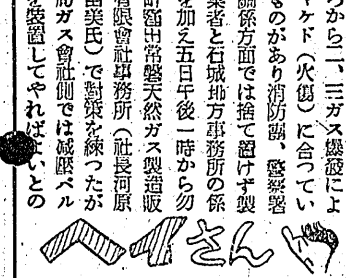 ろから二、三ガス爆發によ
ヤケド（火傷）に合つてい
ものがあり消防團、警察署
關係方面では捨て置けず製
業者と石城地方事務所の係
を加え五日午後一時から勿
町窪田常磐天然ガス製造販
有限會社事務所（社長河原
由美氏）で對策を練つたが
局ガス會社側では減壓バル
を裝置してやればよいとの
ヘイさん